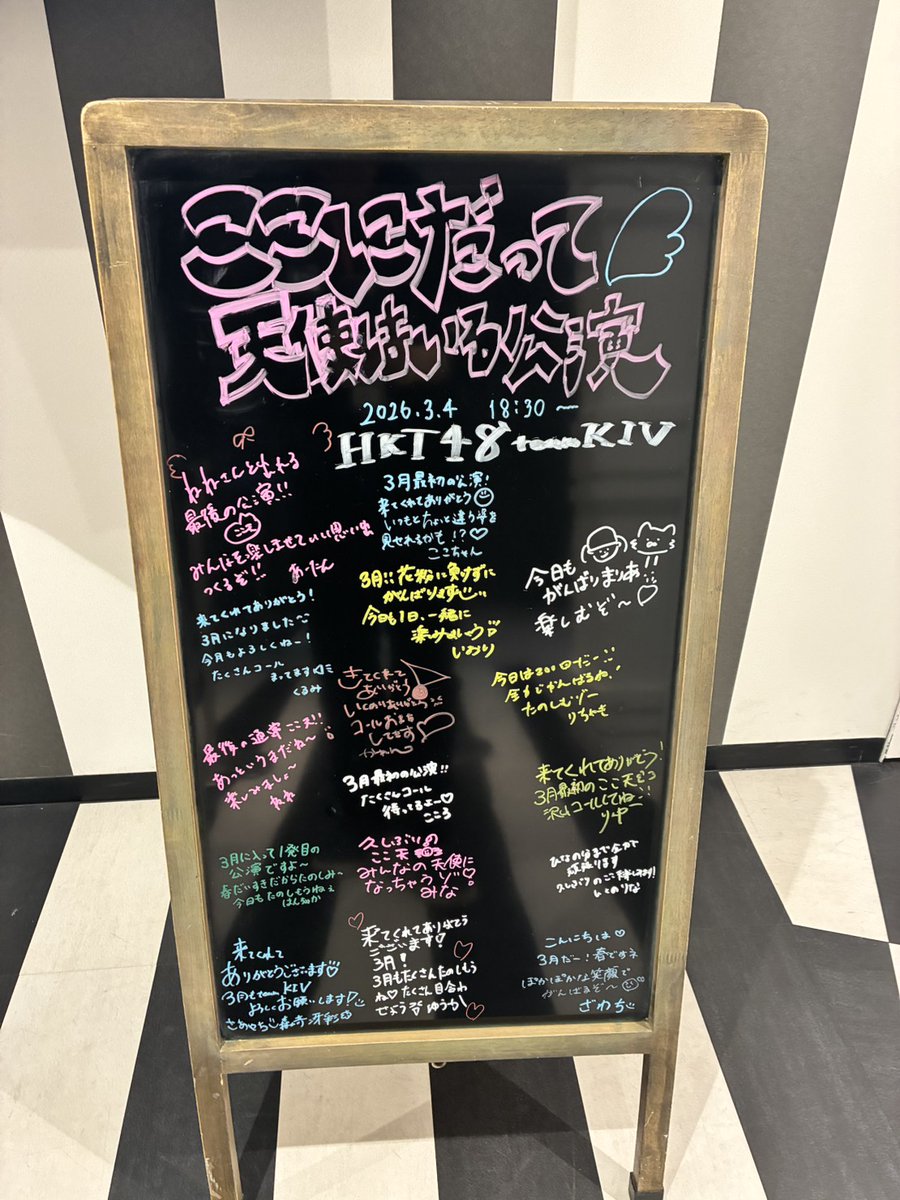 ここにだって
天使はいる公演
2026.3.4 18:30〜
HKT48 team KIV
最後の公演!!
みんなを楽しませていい思い出
つくるぞ!! あーたん
3月最初の公演!
来てくれてありがとう
いつもとちょっと違う姿を
見せれるかも!?♡
ここちゃん
今日も、
がんばりまりあ!!
楽しむぞ〜♡
来てくれてありがとう!
3月になりました〜
今月もよろしくねー!
たくさんコール
まってます
くるみ
3月!! 花粉に負けずに
がんばります
今日も1日、一緒に
楽しみましょう
いおり
きてくれて
ありがとう
コールおまち
してます♡
今日は200回だー!!
全力でがんばるね!
たのしむゾー
りちゃき
最後の通常ここ天!!
あっというまだね〜
楽しみましょ〜
ねね
3月最初の公演!!
たくさんコール
待ってるよー♡
こころ
来てくれてありがとう!
3月最初のここ天だヨ!!
沢山コールしてねー
りゆ
3月に入って1発目の
公演ですよ〜
春だいすきだからたのしみ〜
今日もたのしもうねぇ
はんちゅか
久しぶりの
ここ天
みんなの天使に
なっちゃうゾ♡
みな
ひなのゆまで全力で
頑張ります
いくのりな
来てくれて
ありがとうございます♡
3月もteam KIV
よろしくお願いします
さあやちゃん 森崎冴彩
来てくれてありがとう
ございます!
3月!
3月もたくさんたのしもう
ね♡たくさん目合わ
せようね ゆうちん
こんにちは♡
3月だー!春ですネ
ぽかぽかな笑顔で
がんばるぞ〜
ざわち